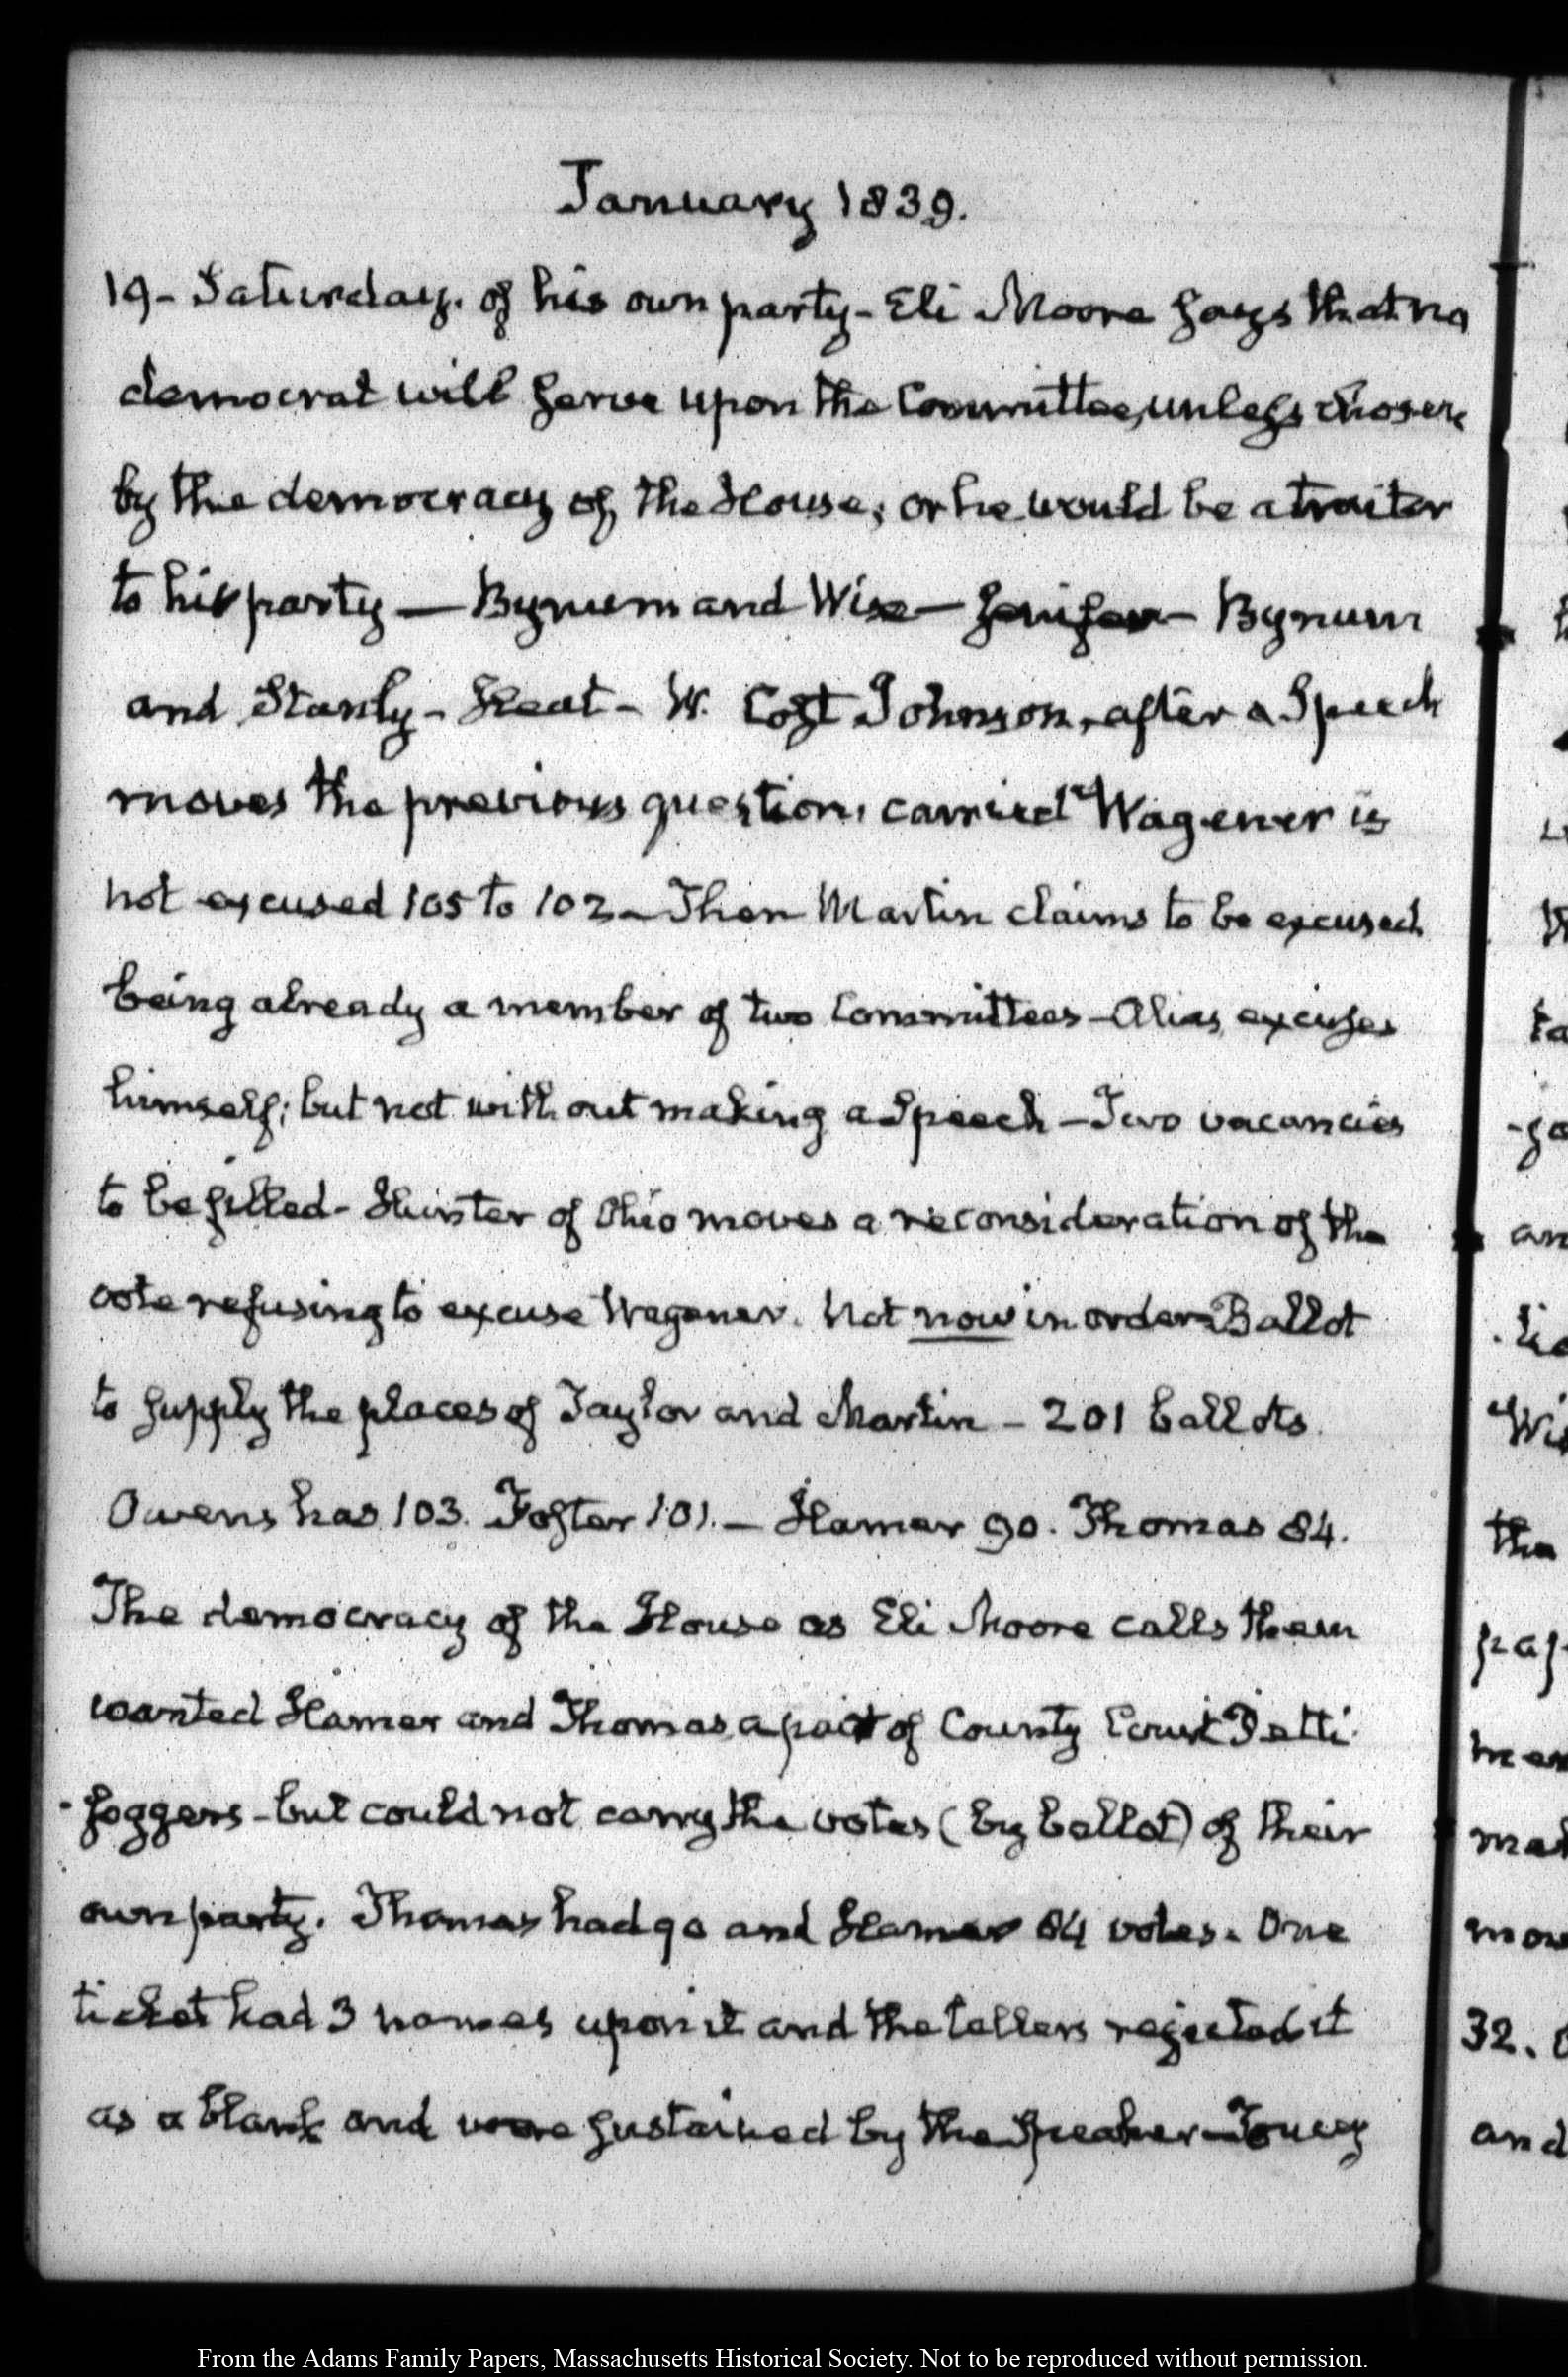 January 1839.
19- Saturday. of his own party- Eli Moore says that no
democrat will serve upon the Committee, unless chosen
by the democracy of the House; or he would be a traitor
to his party — Bynum and Wise — Jenifer — Bynum
and Stanly - Heat - W. Cost Johnson, after a Speech
moves the previous question, carried Wagener is
not excused 105 to 102 - Then Martin claims to be excused
being already a member of two Committees - Alias, excuses
himself; but not without making a Speech - Two vacancies
to be filled - Hunter of Ohio moves a reconsideration of the
vote refusing to excuse Wagener. Not now in order - Ballot
to supply the places of Taylor and Martin - 201 ballots.
Owens has 103. Foster 101. — Hamer 90. Thomas 84.
The democracy of the House as Eli Moore calls them
wanted Hamer and Thomas, a pair of County Court Petti
-foggers - but could not carry the votes (by ballot) of their
own party. Thomas had 90 and Hamer 84 votes. One
ticket had 3 names upon it and the tellers rejected it
as a blank and were sustained by the Speaker - Toucey
32.
and
From the Adams Family Papers, Massachusetts Historical Society. Not to be reproduced without permission.